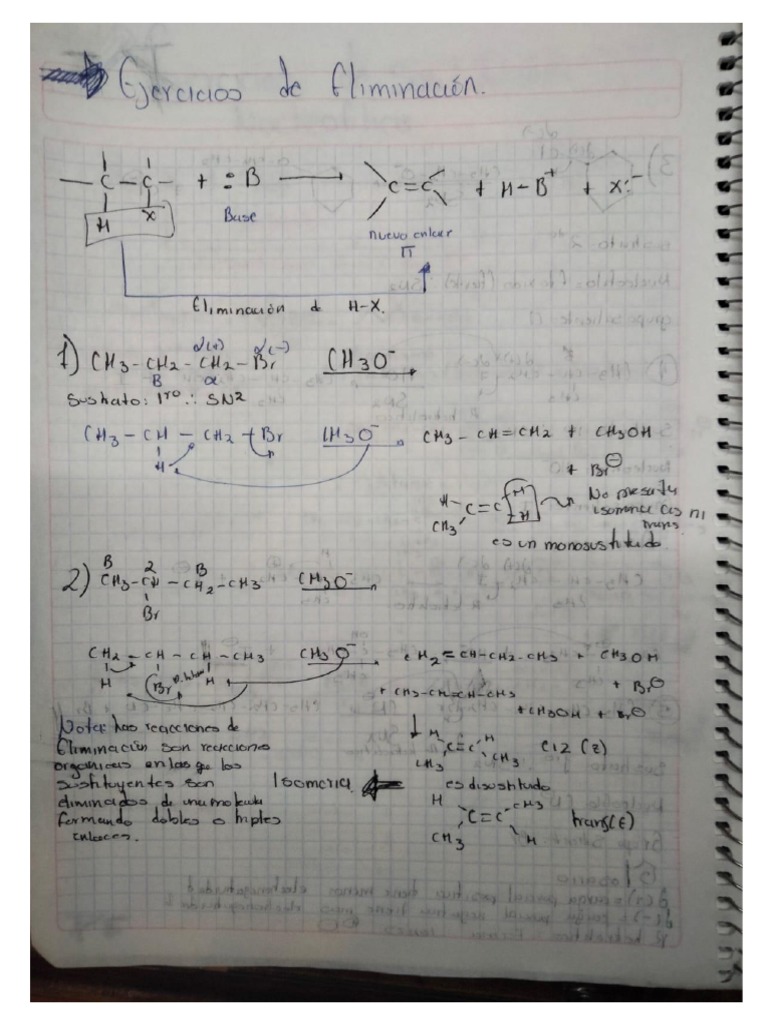 Ejercicios de Eliminación.
— C — C — + :B → C=C + H-B⁺ + X:⁻
H X
Base
nuevo enlace
π
Eliminación de H-X.
1) CH3-CH2-CH2-Br CH3O⁻
B α
Sustrato: 1ro ∴ SN2
CH3 - CH - CH2 - Br CH3O⁻ CH3 - CH=CH2 + CH3OH
H
+ Br⊖
H C=C H
CH3 H
No presenta
isomería cis ni
trans.
es un monosustituido
B 2 B
2) CH3-CH-CH2-CH3 CH3O⁻
Br
CH2 - CH - CH - CH3 CH3O⁻ CH2=CH-CH2-CH3 + CH3OH
H Br H
+ Br⊖
+ CH3-CH=CH-CH3
+CH3OH + Br⊖
Nota: las reacciones de
Eliminación son reacciones
organicas en las que los
sustituyentes son
eliminados de una molecula
formando dobles o triples
enlaces.
Isomeria
H C=C H
CH3 CH3 CIZ (Z)
es disustituido
H C=C CH3
CH3 H trans(E)